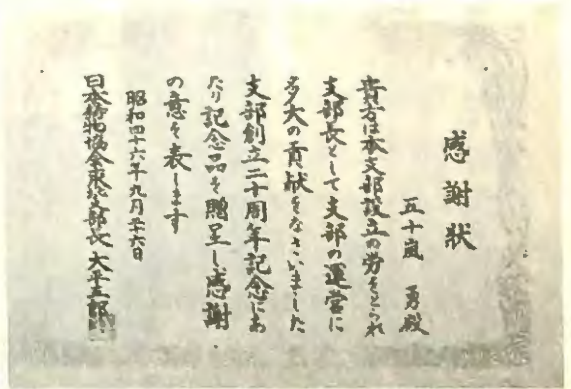 感謝状
五十嵐 勇殿
貴方は本支部設立の労をとられ
支部長として支部の運営に
多大の貢献をなさいました
支部創立二十周年記念にあ
たり記念品を贈呈し感謝
の意を表します
昭和四十六年九月二十六日
日本鋳物協会東北支部長 大平五郎